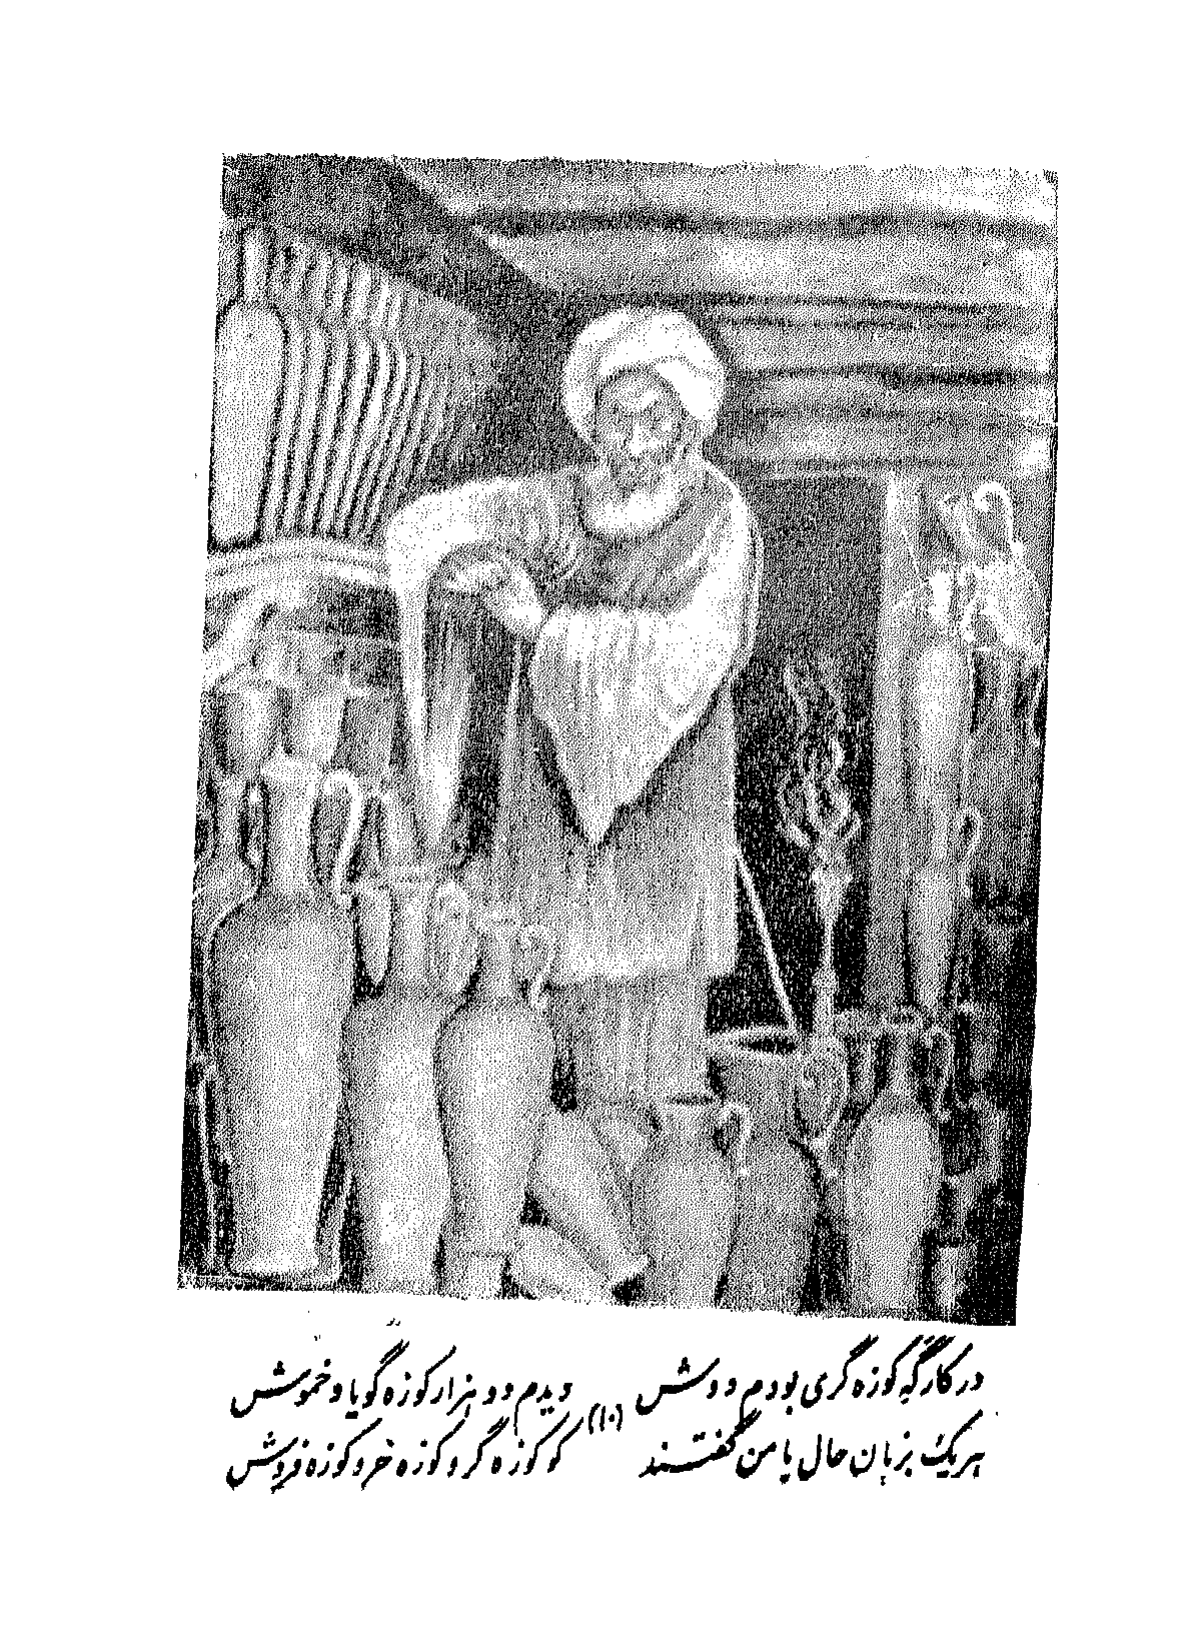 در کارگه کوزه گری بودم دوش (۱۰) دیدم دو هزار کوزه گویا و خموش
هر یک بزبان حال با من گفتند کو کوزه گر و کوزه خر و کوزه فروش